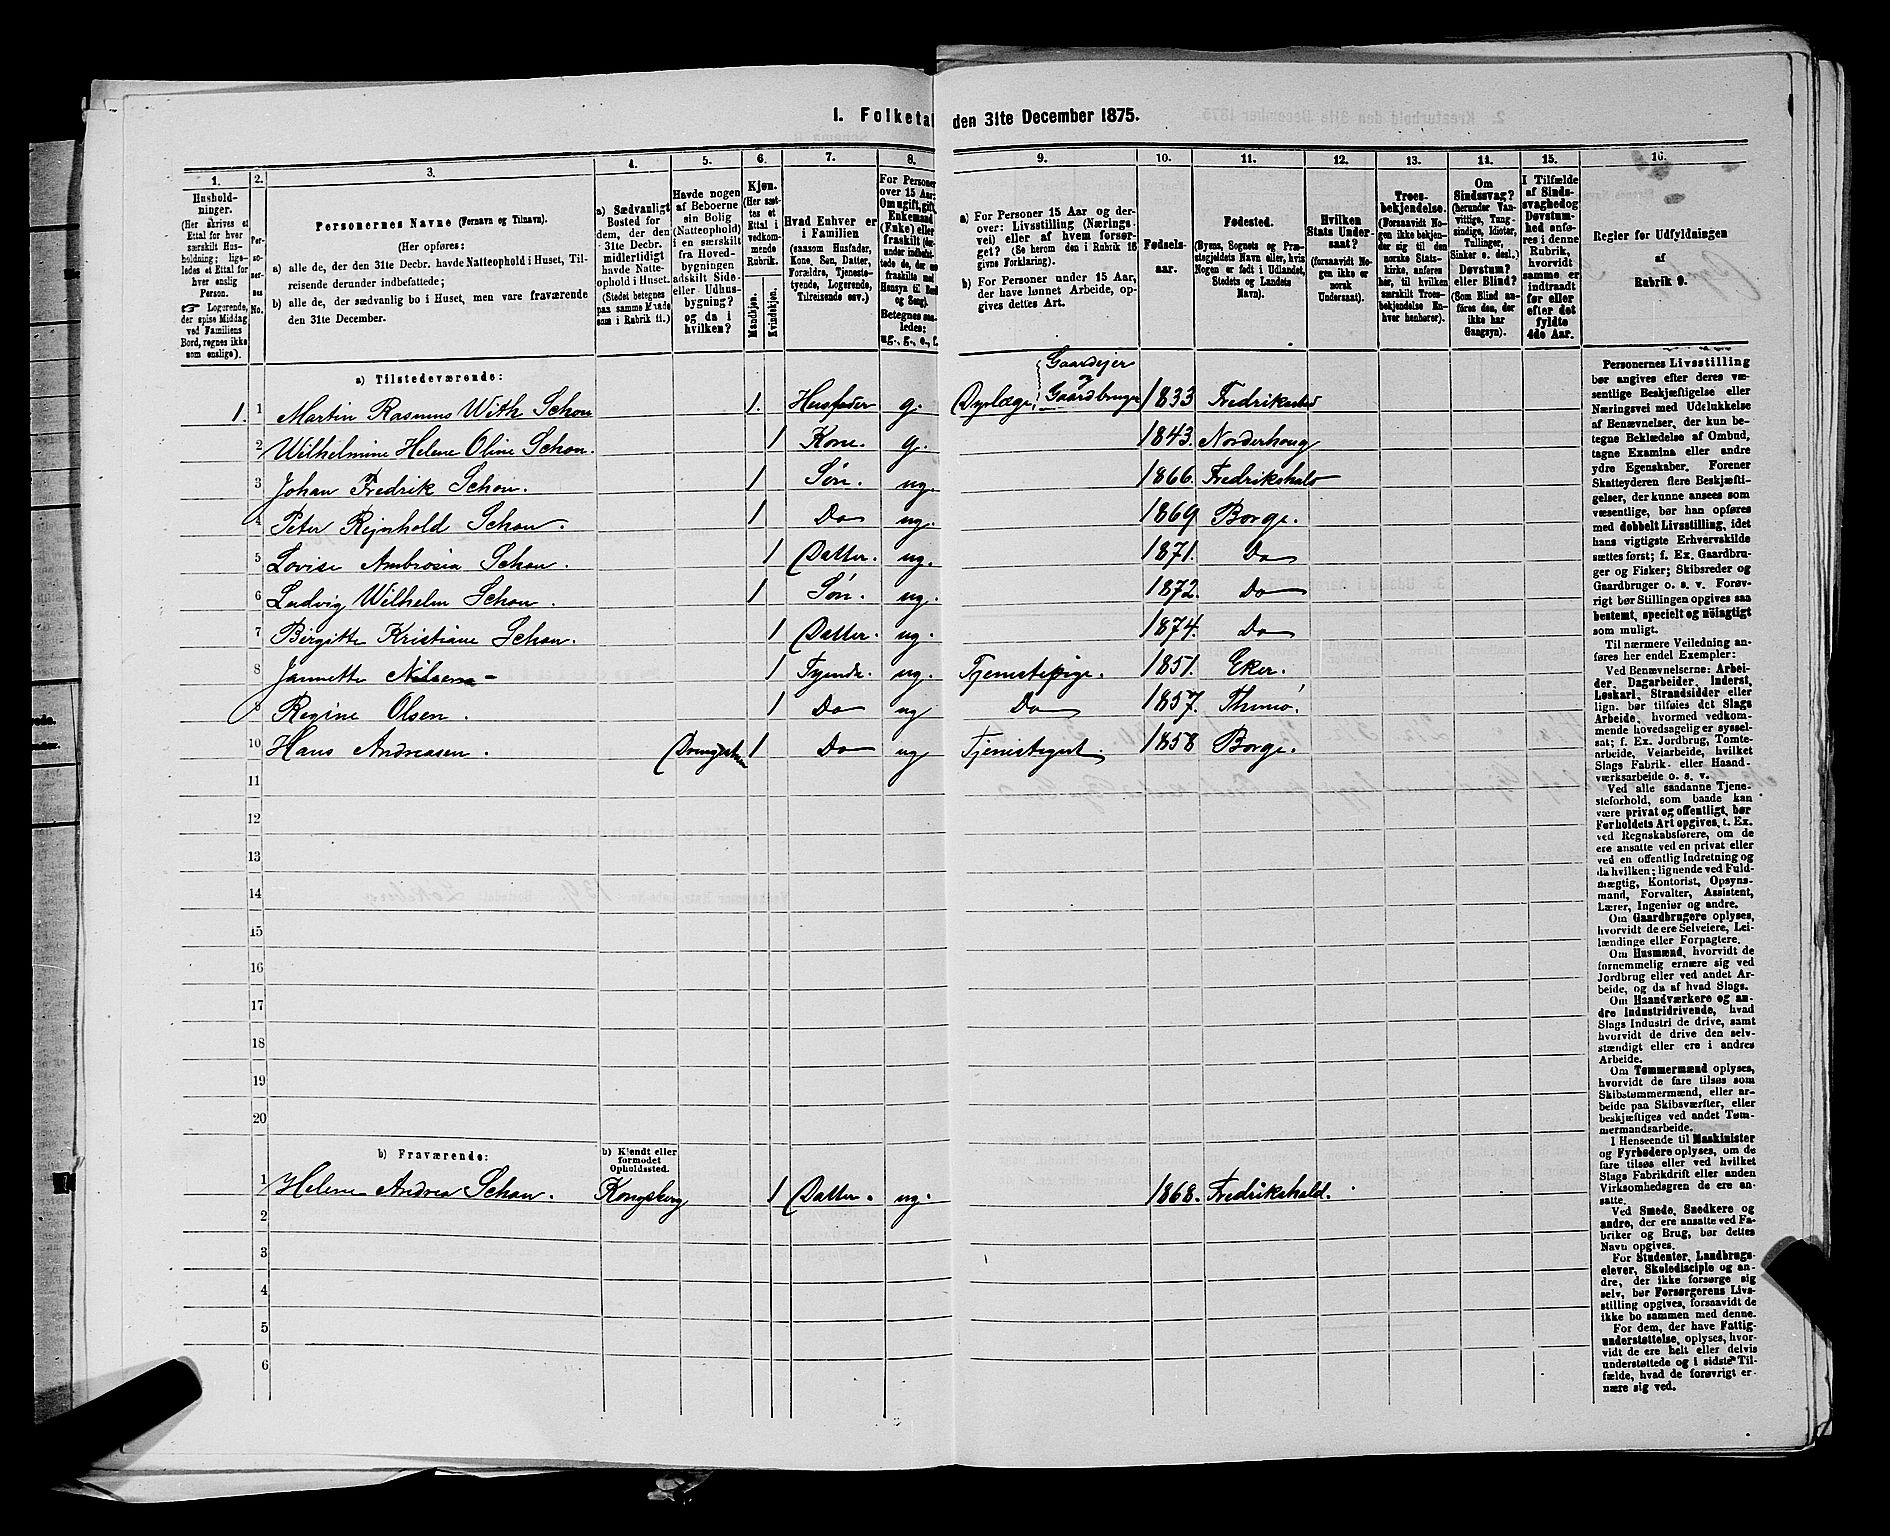 I. Folketal den 31te December 1875.
1. 2. 3. 4. 5. 6. 7. 8. 9. 10. 11. 12. 13. 14. 15. 16.
Husholdninger.
(Her skrives et Ettal for hver særskilt Husholdning; ligeledes et Ettal for hver enslig Person.
☞ Logerende, der spise Middag ved Familiens Bord, regnes ikke som enslige).
Personernes No.
Personernes Navne (Fornavn og Tilnavn).
(Her opføres:
a) alle de, der den 31te Decbr. havde Natteophold i Huset, Tilreisende derunder indbefattede;
b) alle de, der sædvanlig bo i Huset, men vare fraværende den 31te December.
a) Sædvanligt Bosted for dem, der den 31te Decbr. midlertidigt havde Natteophold i Huset.
(Stedet betegnes paa samme Maade som i Rubrik 11.)
Havde nogen af Beboerne sin Bolig (Natteophold) i en særskilt fra Hovedbygningen adskilt Side- eller Udhusbygning? og da i hvilken?
Kjøn.
(Her sættes et Ettal i vedkommende Rubrik.
Mandkjøn.
Kvindekjøn.
Hvad Enhver er i Familien
(saasom Husfader, Kone, Søn, Datter, Forældre, Tjenestetyende, Logerende, Tilreisende osv.)
For Personer over 15 Aar: Om ugift, gift, Enkemand (Enke) eller fraskilt
Betegnes saaledes:
ug., g., e., f.
a) For Personer 15 Aar og derover: Livsstilling (Næringsvei) eller af hvem forsørget? (Se herom den i Rubrik 16 givne Forklaring).
b) For Personer under 15 Aar, der have lønnet Arbeide, opgives dettes Art.
Fødselsaar.
Fødested.
(Byens, Sognets og Præstegjeldets Navn eller, hvis Nogen er født i Udlandet, Stedets og Landets Navn).
Hvilken Stats Undersaat?
(forsaavidt Nogen ikke er norsk Undersaat).
Troesbekjendelse.
(Forsaavidt Nogen ikke bekjender sig til den norske Statskirke, anføres her, til hvilken særskilt Troesbekjendelse Enhver henhører).
Om Sindssvag? (herunder Vanvittige, Tungsindige, Idioter, Tullinger, Sinker o. desl.). Døvstum? eller Blind? (Som Blind anføres den, der ikke har Gangsyn).
I Tilfælde af Sindssvaghed og Døvstumhed anføres i denne Rubrik, hvorvidt samme er indtraadt før eller efter det fyldte 4de Aar.
Regler for Udfyldningen af Rubrik 9.
a) Tilstedeværende:
1. 1 Martin Rasmus With Schou 1. Husfader g. Dyrlæge, Gaardejer og Gaardbruger 1833 Fredrikstad
2 Wilhelmine Helene Oline Schou. 1 Kone. g. 1843. Norderhoug
3 Johan Fredrik Schou. 1 Søn. ug. 1866. Fredrikshald
4 Peter Rejnhold Schou. 1 Do ug. 1869 Borge.
5 Lovise Ambrosia Schou. 1 Datter. ug. 1871. Do
6 Ludvig Wilhelm Schou. 1 Søn. ug. 1872. Do
7 Birgitte Kristiane Schou. 1 Datter. ug. 1874. Do
8 Jannette Nilsen 1 Tyende. ug. Tjenestepige. 1851. Eker.
9 Regine Olsen. 1 Do ug Do 1857.
10 Hans Andreasen. 1 Do ug Tjenestegut. 1858 Borge.
11
12
13
14
15
16
17
18
19
20
b) Fraværende:
b) Kjendt eller formodet Opholdssted.
1 Helene Andrea Schou. Kongsberg 1 Datter. ug. 1868. Fredrikshald.
2
3
4
5
6
Personernes Livsstilling
bør angives efter deres væ-
sentlige Beskjæftigelse eller
Næringsvei med Udelukkelse
af Benævnelser, der kun be-
tegne Beklædelse af Ombud,
tagne Examina eller andre
ydre Egenskaber. Forener
Skatteyderen flere Beskjæfti-
gelser, der kunne ansees som
væsentlige, bør han opføres
med dobbelt Livsstilling, idet
hans vigtigste Erhvervskilde
sættes først; f. Ex. Gaardbru-
ger og Fisker; Skibsreder og
Gaardbruger o. s. v. Forøv-
rigt bør Stillingen opgives saa
bestemt, specielt og nøiagtigt
som muligt.
Til nærmere Veiledning an-
føres her endel Exempler:
Ved Benævnelserne: Arbei-
der, Dagarbeider, Inderst,
Løskarl, Strandsidder eller
lign. bør tilføies det Slags
Arbeide, hvormed vedkom-
mende hovedsagelig er syssel-
sat; f. Ex. Jordbrug, Tomte-
arbeide, Veiarbeide, hvilket
Slags Fabrik- eller Haand-
værksarbeide o. s. v.
Ved alle saadanne Tjene-
steforhold, som baade kan
være privat og offentligt, bør
Forholdets Art opgives, t. Ex.
ved Regnskabsførere, om de
ere ansatte ved en privat eller
ved en offentlig Indretning og
da hvilken; lignende ved Fuld-
mægtig, Kontorist, Opsyns-
mand, Forvalter, Assistent,
Lærer, Ingeniør og andre.
Om Gaardbrugere oplyses,
hvorvidt de ere Selveiere, Lei-
lændinge eller Forpagtere.
Om Husmænd, hvorvidt de
fornemmelig ernære sig ved
Jordbrug eller ved andet Ar-
beide, og da af hvad Slags.
Om Haandværkere og an-
dre Industridrivende, hvad
Slags Industri de drive, samt
hvorvidt de drive den selv-
stændigt eller ere i andres
Arbeide.
Om Tømmermænd oplyses,
hvorvidt de fare tilsøs som
Skibstømmermænd, eller ar-
beide paa Skibsværfter, eller
beskjæftiges ved andet Tøm-
mermandsarbeide.
I Henseende til Maskinister
og Fyrbødere oplyses, om de
fare tilsøs eller ved hvilket
Slags Fabrikdrift eller anden
Virksomhedsgren de ere an-
satte.
Ved Smede, Snedkere og
andre, der ere ansatte ved Fa-
briker og Brug, bør dettes
Navn opgives.
For Studenter, Landbrugs-
elever, Skoledisciple og an-
dre, der ikke forsørge sig
selv, bør Forsørgerens Livs-
stilling opgives, forsaavidt de
ikke bo sammen med denne.
For dem, der have Fattig-
understøttelse, oplyses, hvor-
vidt de ere helt eller delvis
understøttede og i sidste Til-
fælde, hvad de forøvrigt er-
nære sig ved.